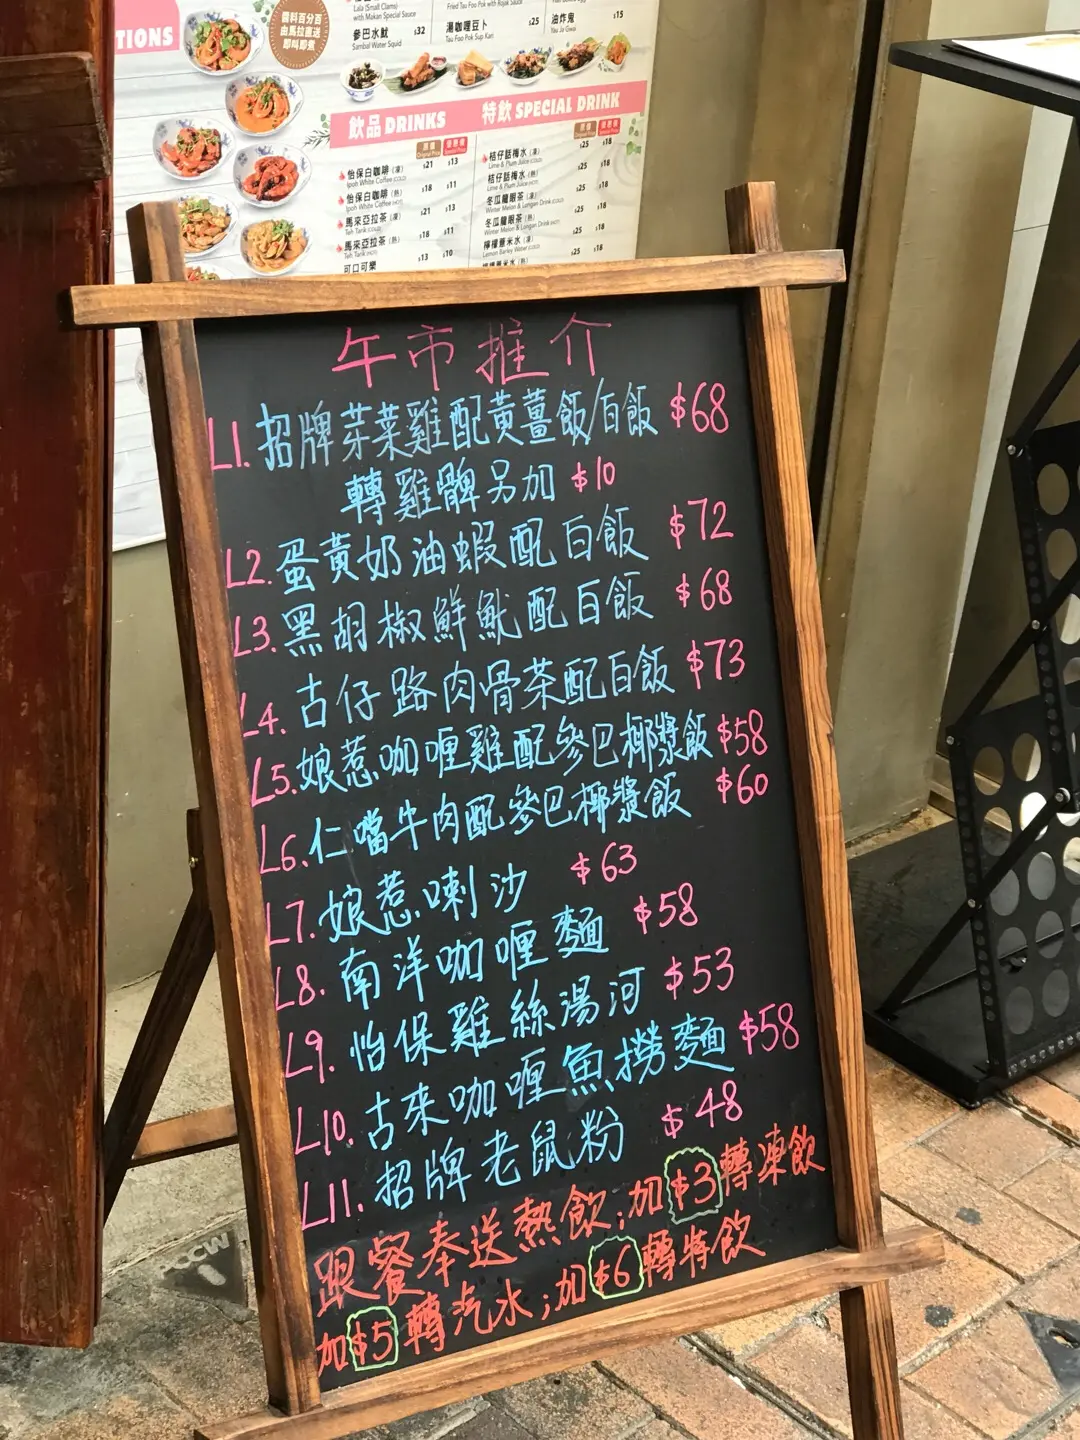 TIONS
醬料百分百
由馬拉直送
即叫即煮
Lala (Small Clams)
with Makan Special Sauce
參巴水魷 $32
Sambal Water Squid
Fried Tau Foo Pok with Rojak Sauce
湯咖喱豆卜 $25
Tau Foo Pok Sup Kari
油炸鬼 $15
Yau Ja Gwai
飲品 DRINKS
怡保白咖啡(凍) $21 $13
Ipoh White Coffee (COLD)
怡保白咖啡(熱) $18 $11
Ipoh White Coffee (HOT)
馬來亞拉茶(凍) $21 $13
Teh Tarik (COLD)
馬來亞拉茶(熱) $18 $11
Teh Tarik (HOT)
可口可樂 $13 $10
特飲 SPECIAL DRINK
桔仔話梅水(凍) $25 $18
Lime & Plum Juice (COLD)
桔仔話梅水(熱) $25 $18
Lime & Plum Juice (HOT)
冬瓜龍眼茶(凍) $25 $18
Winter Melon & Longan Drink (COLD)
冬瓜龍眼茶(熱) $25 $18
Winter Melon & Longan Drink (HOT)
檸檬薏米水(凍) $25 $18
Lemon Barley Water (COLD)
午市推介
L1. 招牌芽菜雞配黃薑飯/白飯 $68
轉雞髀另加 $10
L2. 蛋黃奶油蝦配白飯 $72
L3. 黑胡椒鮮魷配白飯 $68
L4. 古仔路肉骨茶配白飯 $73
L5. 娘惹咖喱雞配參巴椰漿飯 $58
L6. 仁噹牛肉配參巴椰漿飯 $60
L7. 娘惹喇沙 $63
L8. 南洋咖喱麵 $58
L9. 怡保雞絲湯河 $53
L10. 古來咖喱魚撈麵 $58
L11. 招牌老鼠粉 $48
跟餐奉送熱飲;加$3轉凍飲
加$5轉汽水;加$6轉特飲
PCCW